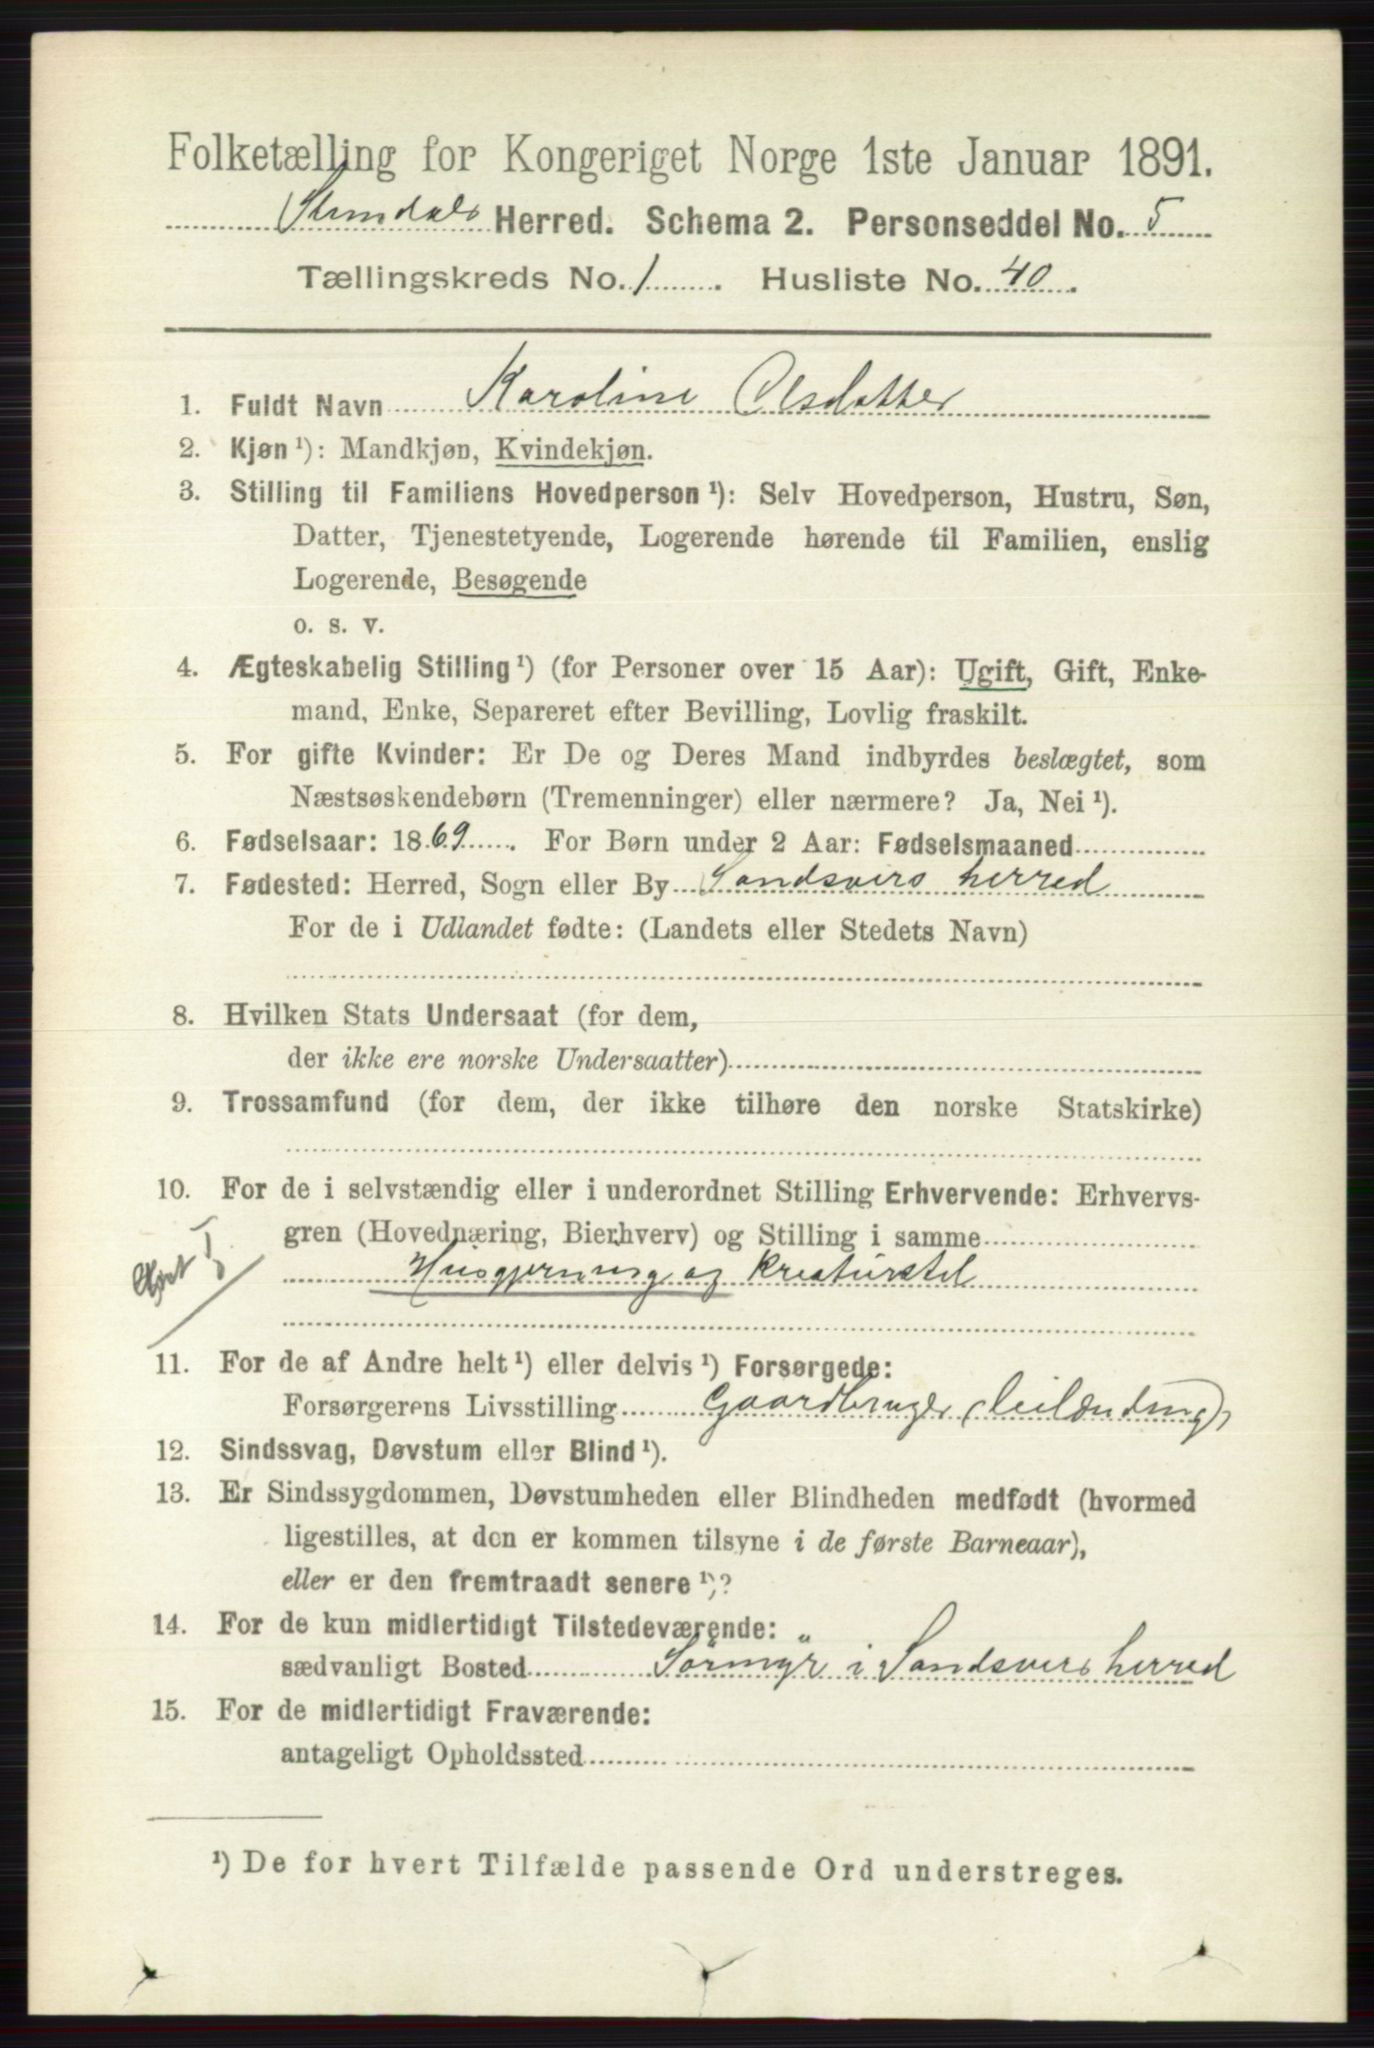 Folketælling for Kongeriget Norge 1ste Januar 1891.
Herred. Schema 2. Personseddel No. 5
Tællingskreds No. 1. Husliste No. 40.
1. Fuldt Navn Karoline Olsdatter
2. Kjøn ¹): Mandkjøn, Kvindekjøn.
3. Stilling til Familiens Hovedperson ¹): Selv Hovedperson, Hustru, Søn,
Datter, Tjenestetyende, Logerende hørende til Familien, enslig
Logerende, Besøgende
o. s. v.
4. Ægteskabelig Stilling ¹) (for Personer over 15 Aar): Ugift, Gift, Enke-
mand, Enke, Separeret efter Bevilling, Lovlig fraskilt.
5. For gifte Kvinder: Er De og Deres Mand indbyrdes beslægtet, som
Næstsøskendebørn (Tremenninger) eller nærmere? Ja, Nei ¹).
6. Fødselsaar: 1869. For Børn under 2 Aar: Fødselsmaaned
7. Fødested: Herred, Sogn eller By Sandsvers herred
For de i Udlandet fødte: (Landets eller Stedets Navn)
8. Hvilken Stats Undersaat (for dem,
der ikke ere norske Undersaatter)
9. Trossamfund (for dem, der ikke tilhøre den norske Statskirke)
10. For de i selvstændig eller i underordnet Stilling Erhvervende: Erhvervs-
gren (Hovednæring, Bierhverv) og Stilling i samme
Husgjerning og Kreaturstel
11. For de af Andre helt ¹) eller delvis ¹) Forsørgede:
Forsørgerens Livsstilling Gaardbruger (leilænding)
12. Sindssvag, Døvstum eller Blind ¹).
13. Er Sindssygdommen, Døvstumheden eller Blindheden medfødt (hvormed
ligestilles, at den er kommen tilsyne i de første Barneaar),
eller er den fremtraadt senere ¹)?
14. For de kun midlertidigt Tilstedeværende:
sædvanligt Bosted Sørmyr i Sandsvers herred
15. For de midlertidigt Fraværende:
antageligt Opholdssted
¹) De for hvert Tilfælde passende Ord understreges.